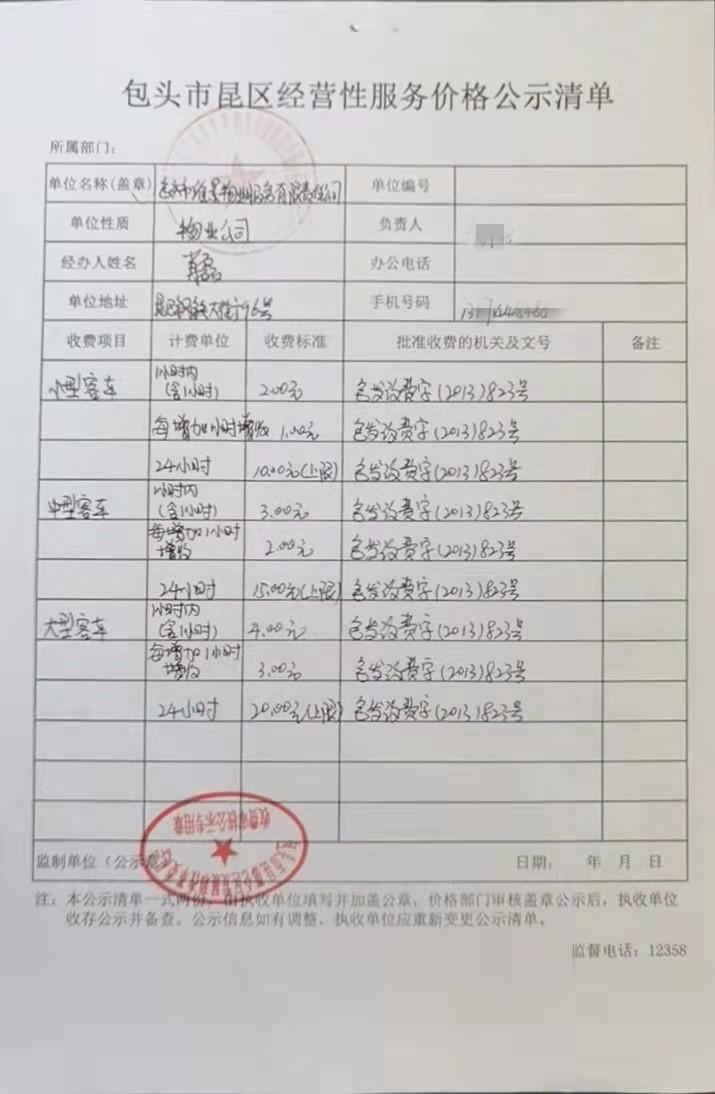 包头市昆区经营性服务价格公示清单
所属部门:
单位名称(盖章) 包头市 物业服务有限责任公司 单位编号
单位性质 物业公司 负责人
经办人姓名 办公电话
单位地址 昆区钢铁大街 96号 手机号码
收费项目 计费单位 收费标准 批准收费的机关及文号 备注
小型客车 1小时内(含1小时) 2.00元 包发改费字(2013)823号
每增加1小时增收 1.00元 包发改费字(2013)823号
24小时 10.00元(上限) 包发改费字(2013)823号
中型客车 1小时内(含1小时) 3.00元 包发改费字(2013)823号
每增加1小时增收 2.00元 包发改费字(2013)823号
24小时 15.00元(上限) 包发改费字(2013)823号
大型客车 1小时内(含1小时) 4.00元 包发改费字(2013)823号
每增加1小时增收 3.00元 包发改费字(2013)823号
24小时 20.00元(上限) 包发改费字(2013)823号
收费审核公示专用章
监制单位(公示章) 日期: 年 月 日
注:本公示清单一式两份,由执收单位填写并加盖公章,价格部门审核盖章公示后,执收单位
收存公示并备查。公示信息如有调整,执收单位应重新变更公示清单。
监督电话:12358